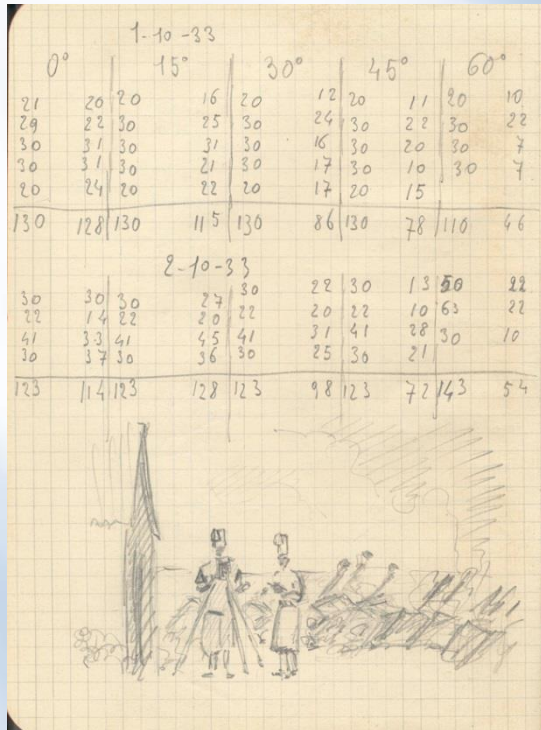 1-10-33
0° 15° 30° 45° 60°
21 20 20 16 20 12 20 11 20 10
29 22 30 25 30 24 30 22 30 22
30 31 30 31 30 16 30 20 30 7
30 31 30 21 30 17 30 10 30 7
20 24 20 22 20 17 20 15
130 128 130 115 130 86 130 78 110 46
2-10-33
30 30 30 27 30 22 30 13 50 22
22 14 22 20 22 20 22 10 63 22
41 33 41 45 41 31 41 28 30 10
30 37 30 36 30 25 30 21
123 114 123 128 123 98 123 72 143 54